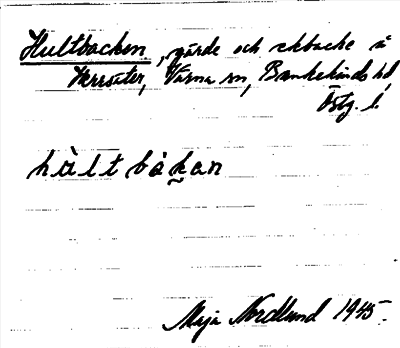 Hultbacken, gärde och ekbacke å
Värna sn, Bankekinds hd,
Östg. l.
hùltbàkan
Maja Nordlund 1945.